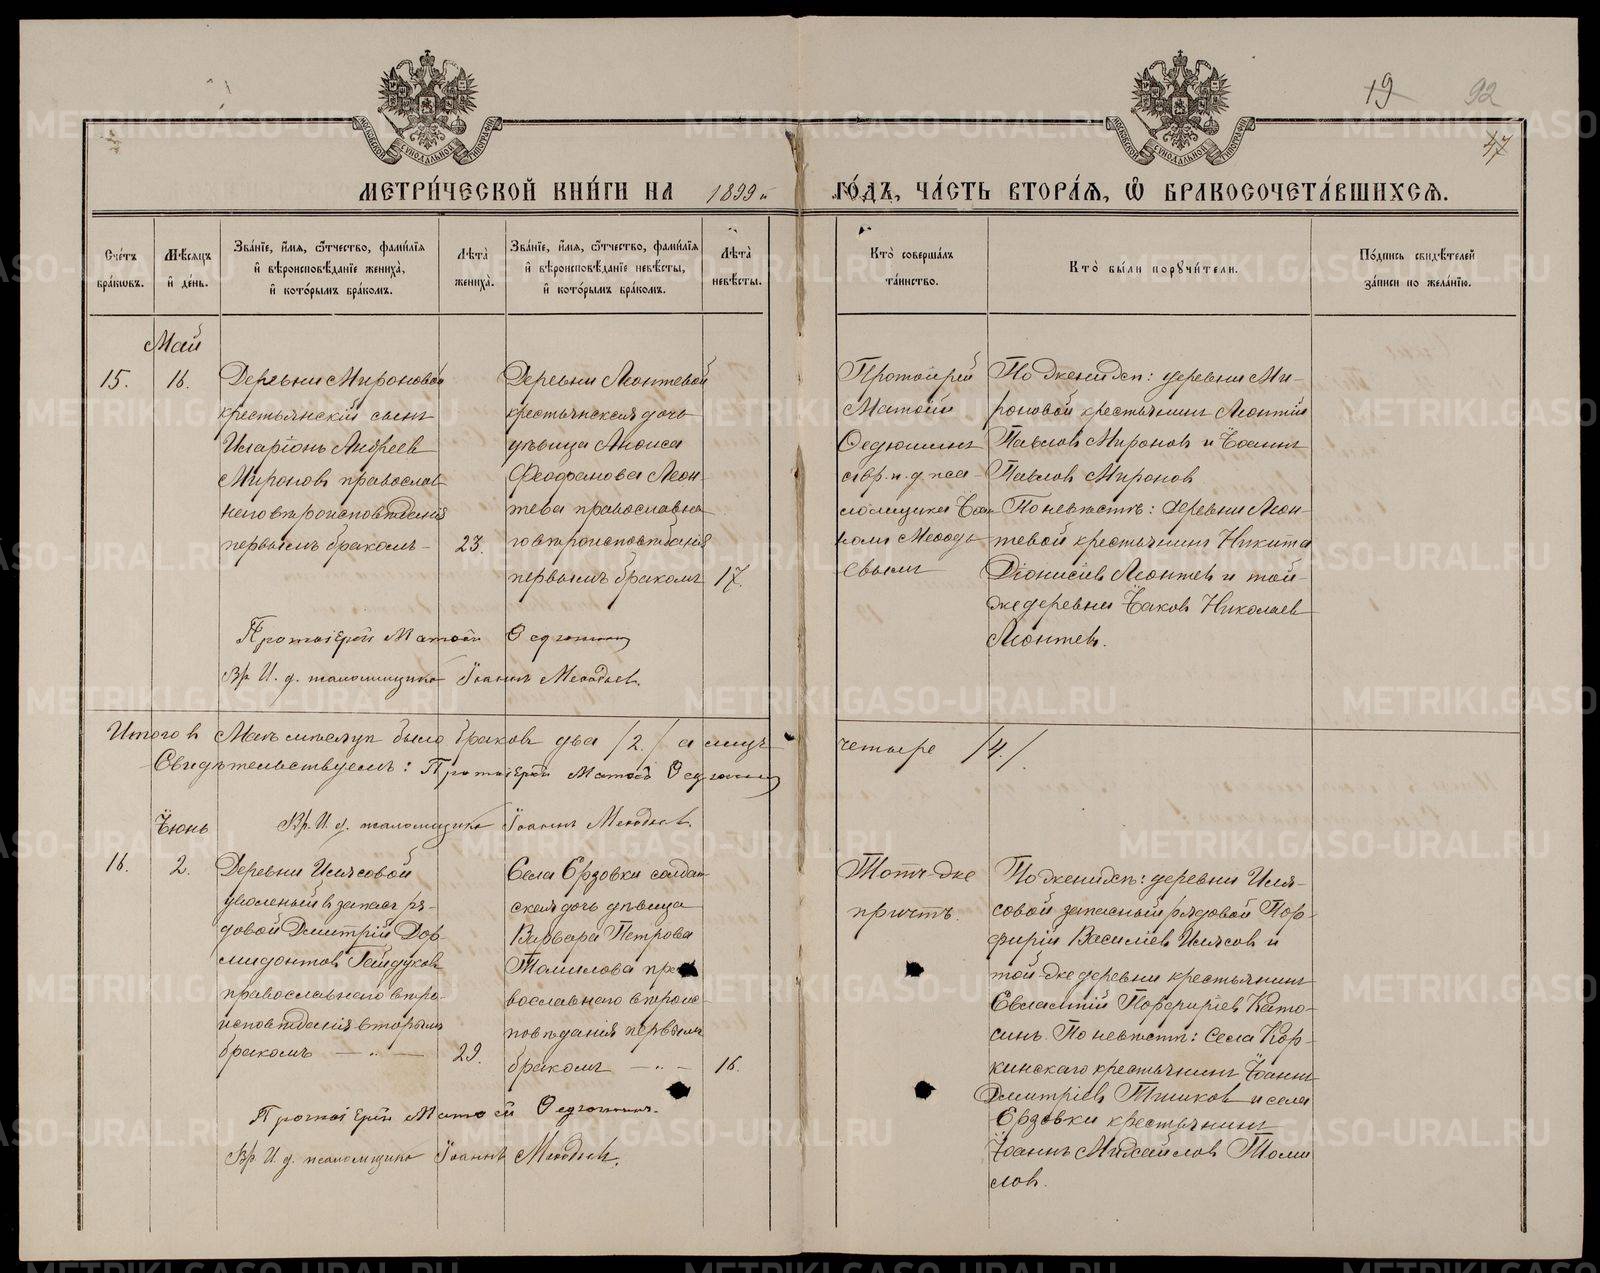 19 92
47
МОСКОВСКОЙ СѴНОДАЛЬНОЙ ТИПОГРАФІИ
МОСКОВСКОЙ СѴНОДАЛЬНОЙ ТИПОГРАФІИ
МЕТРИ́ЧЕСКОЙ КНИ́ГИ НА 1899 й ГО́ДЪ, ЧА́СТЬ ВТОРА́Я, Ѽ БРАКОСОЧЕТА́ВШИХСѦ.
Сче́тъ бра́кѡвъ.
Мѣ́сяцъ и҆ де́нь.
Зва́нїе, и҆́мя, ѻ҆́тчество, фами́лїя и҆ вѣроисповѣ́данїе жениха̀, и҆ кото́рымъ бра́комъ.
Лѣ́та жениха̀.
Зва́нїе, и҆́мя, ѻ҆́тчество, фами́лїя и҆ вѣроисповѣ́данїе невѣ́сты, и҆ кото́рымъ бра́комъ.
Лѣ́та невѣ́сты.
Кто̀ соверша́лъ та́инство.
Кто̀ бы́ли порꙋчи́тели.
По́дпись свидѣ́телей за́писи по жела́нїю.
Май
15.
16.
Деревни Мироновой
крестьянскій сынъ
Иларіонъ Андреев
Миронов православ
наго вѣроисповѣданія
первымъ бракомъ –
23.
Деревни Леонтевой
крестьянская дочь
дѣвица Анѳиса
Феофанова Леон-
тева православна
го вѣроисповѣданія
первымъ бракомъ
17.
Протоіерей
Матѳій
Ѳедюшинъ
с вр. и. д. пса-
ломщика Іоан
номъ Меѳодь
евымъ
По женихѣ: деревни Ми-
роновой крестьянинъ Леонтій
Павлов Миронов и Іоаннъ
Павлов Миронов
По невѣстѣ: деревни Леон-
тевой крестьянинъ Никита
Діонисіев Леонтев и той-
же деревни Іаков Николаев
Леонтев.
Протоіерей Матѳій Ѳедюшинъ
Вр. И. д. псаломщика Іоаннъ Меѳодьев.
Итого в Маѣ мѣсяцѣ было браков два /2./ а лицъ четыре /4./
Свидѣтельствуемъ: Протоіерей Матѳій Ѳедюшинъ
Вр. И. д. псаломщика Іоаннъ Меѳодьев.
Іюнь
16.
2.
Деревни Илясовой
уволеный в запасъ ря-
довой Дмитрій Дор-
мидонтов Гайдуков
православнаго вѣро-
исповѣданія вторымъ
бракомъ — „ —
29.
Села Ерзовки солдат
ская дочь дѣвица
Варвара Петрова
Томилова пра
вославнаго вѣроис-
повѣданія первымъ
бракомъ — „ —
16.
Тотъ-же
причтъ.
По женихѣ: деревни Иля-
совой запасный рядовой Пор-
фирій Василіев Илясов и
той-же деревни крестьянинъ
Евлампій Порфиріев Като-
синъ. По невѣстѣ: Села Кор-
кинскаго крестьянинъ Іоаннъ
Дмитріев Тишков и села
Ерзовки крестьянинъ
Іоаннъ Михайлов Томи
лов.
Протоіерей Матѳій Ѳедюшинъ.
Вр. И. д. псаломщика Іоаннъ Меѳодьев.
METRIKI.GASO-URAL.RU